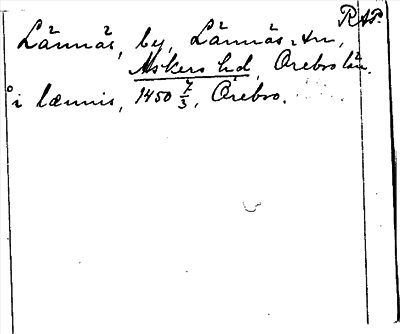 RAP.
Lännäs, by, Lännäs sn,
Askers hd, Örebro län.
i lænnis, 1450 7/3, Örebro.